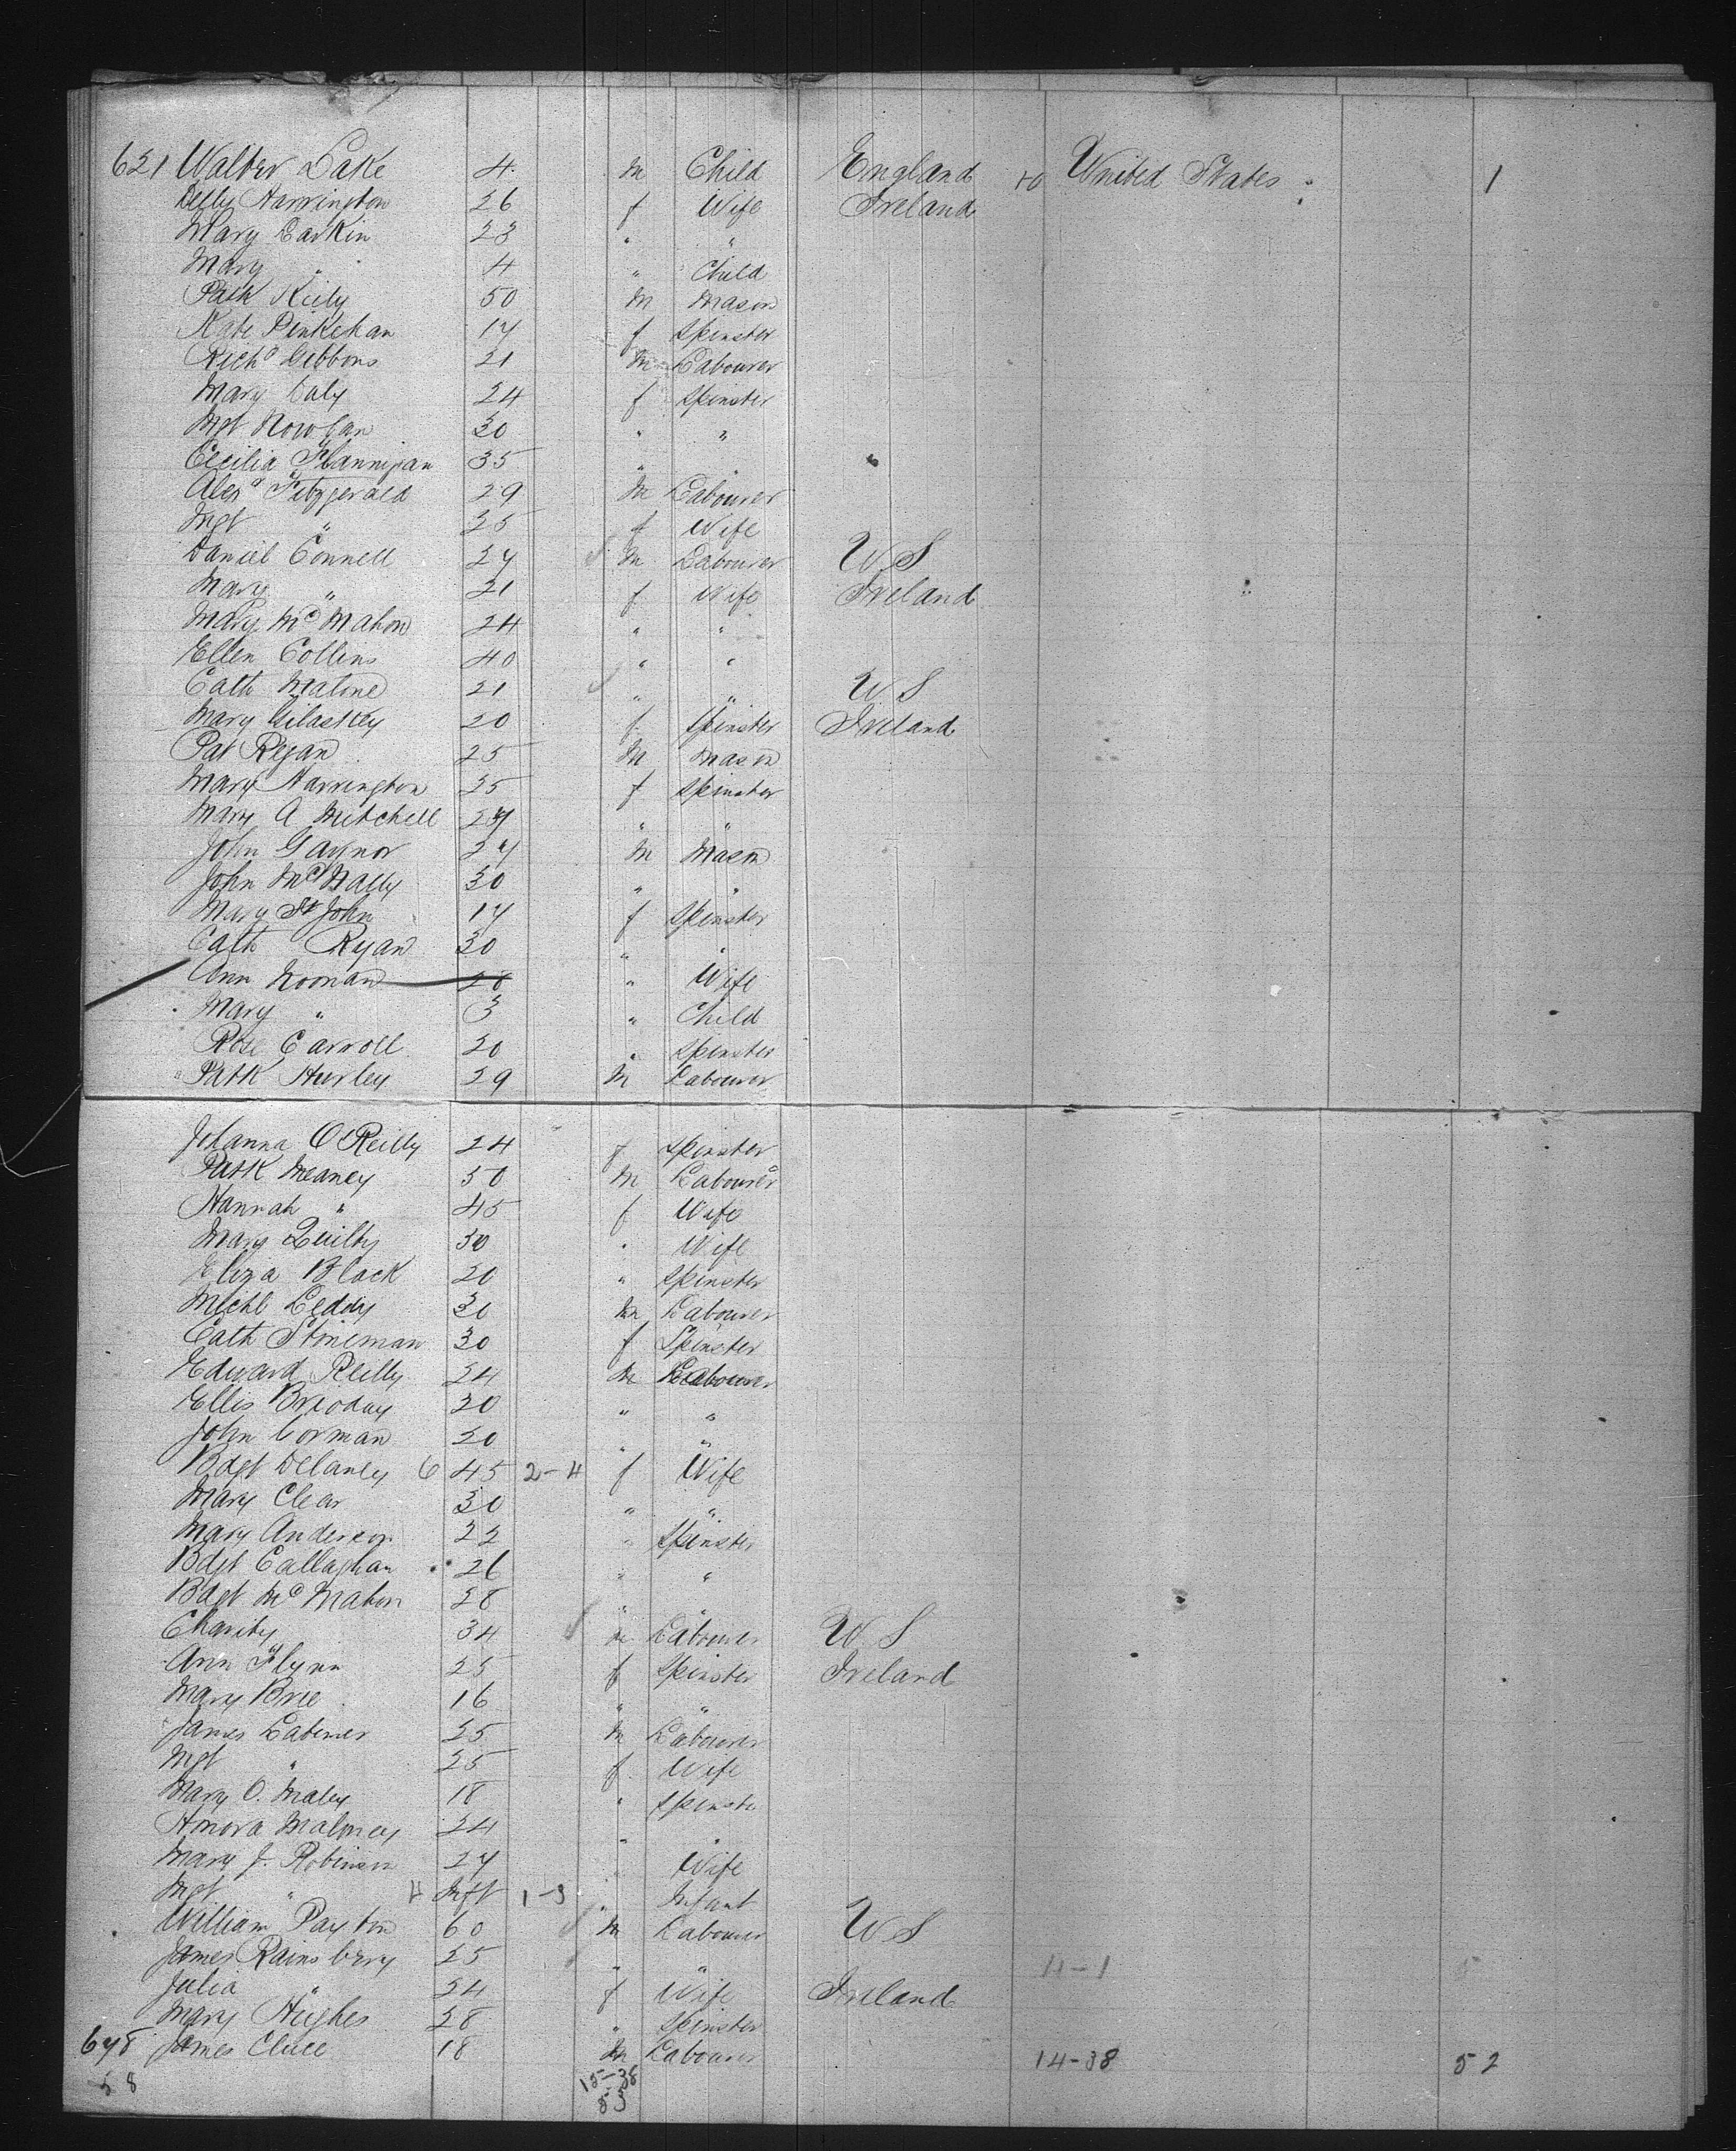 621 Walter Lake 4 m Child England to United States 1
Delly Harrington 26 f Wife Ireland
Mary Larkin 23 " "
Mary " 4 " Child
Patk Kiely 50 m Mason
Kate 17 f Spinster
Richd Gibbons 21 m Labourer
Mary Daly 24 f Spinster
Mgt Nowlan 30 " "
Cecilia Flannigan 35 " "
Alexr Fitzgerald 29 m Labourer
Mgt " 25 f Wife
Daniel Connell 27 m Labourer U S
Mary " 21 f Wife Ireland
Mary McMahon 24 " "
Ellen Collins 40 " "
Cath Malone 21 " " U S
Mary 20 f Spinster Ireland
Pat Regan 25 m Mason
Mary Harrington 25 f Spinster
Mary A Mitchell " "
John Gaynor 27 m Mason
John McNally 30 " "
Mary St John 17 f Spinster
Cath Ryan 30 " "
Ann Noonan 28 " Wife
Mary " 3 " Child
Rose Carroll 20 " Spinster
Patk Hurley 29 m Labourer
Johanna O'Reilly 24 f Spinster
Patk Meaney 50 m Labourer
Hannah " 45 f Wife
Mary Quilty 30 " Wife
Eliza Black 20 " Spinster
Michl Leddy 30 m Labourer
Cath Stineman 30 f Spinster
Edward Reilly 24 m Labourer
Ellis 20 " "
John Corman 20 " "
Bdgt Delaney 6 45 2-4 f Wife
Mary Clear 30 " "
Mary Anderson 22 " Spinster
Bdgt Callaghan 26 " "
Bdgt McMahon 28 " "
Charity 34 m Labourer U S
Ann Flynn 25 f Spinster Ireland
Mary Brie 16 " "
James Latimer 25 m Labourer
Mgt " 25 f Wife
Mary O. Maley 18 " Spinster
Honora Maloney 24 " "
Mary J. Robinson 27 " Wife
Mgt " 4 Inft 1-3 " Infant
William Payton 60 m Labourer U S
James Rainsbery 25 " " 11-1
Julia " 24 f Wife Ireland
Mary Hughes 28 " Spinster
678 James 18 m Labourer 14-38 52
58 15-38
53